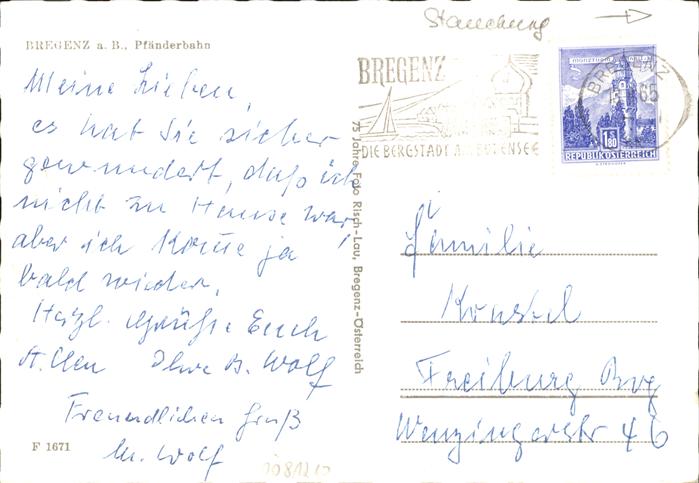 Stauchung
BREGENZ a. B., Pfänderbahn
Meine Lieben,
es hat Sie sicher
gewundert, daß ich
nicht zu Hause war,
aber ich komme ja
bald wieder.
Herzl. Grüße Euch
Allen Ihre B. Wolf
Freundlichen Gruß
M. Wolf
F 1671
75 Jahre Foto Risch-Lau, Bregenz-Österreich
BREGENZ
DIE BERGSTADT AM BODENSEE
BREGENZ
65
MÜNZTURM HALL
1.80
REPUBLIK ÖSTERREICH
Familie
Konstel
Freiburg Brg
Wenzingerstr 46